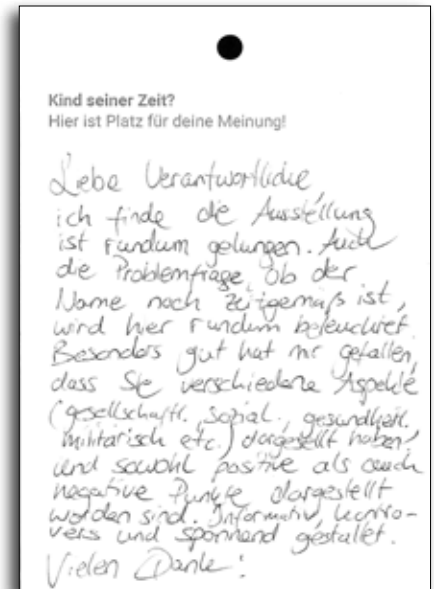 Kind seiner Zeit?
Hier ist Platz für deine Meinung!
Liebe Verantwortliche,
ich finde die Ausstellung
ist rundum gelungen. Auch
die Problemfrage, ob der
Name noch zeitgemäß ist,
wird hier rundum beleuchtet.
Besonders gut hat mir gefallen,
dass Sie verschiedene Aspekte
(gesellschaftl., sozial., gesundheitl.
militärisch etc.) dargestellt haben,
und sowohl positive als auch
negative Punkte dargestellt
worden sind. Informativ, kontro-
vers und spannend gestaltet.
Vielen Dank!